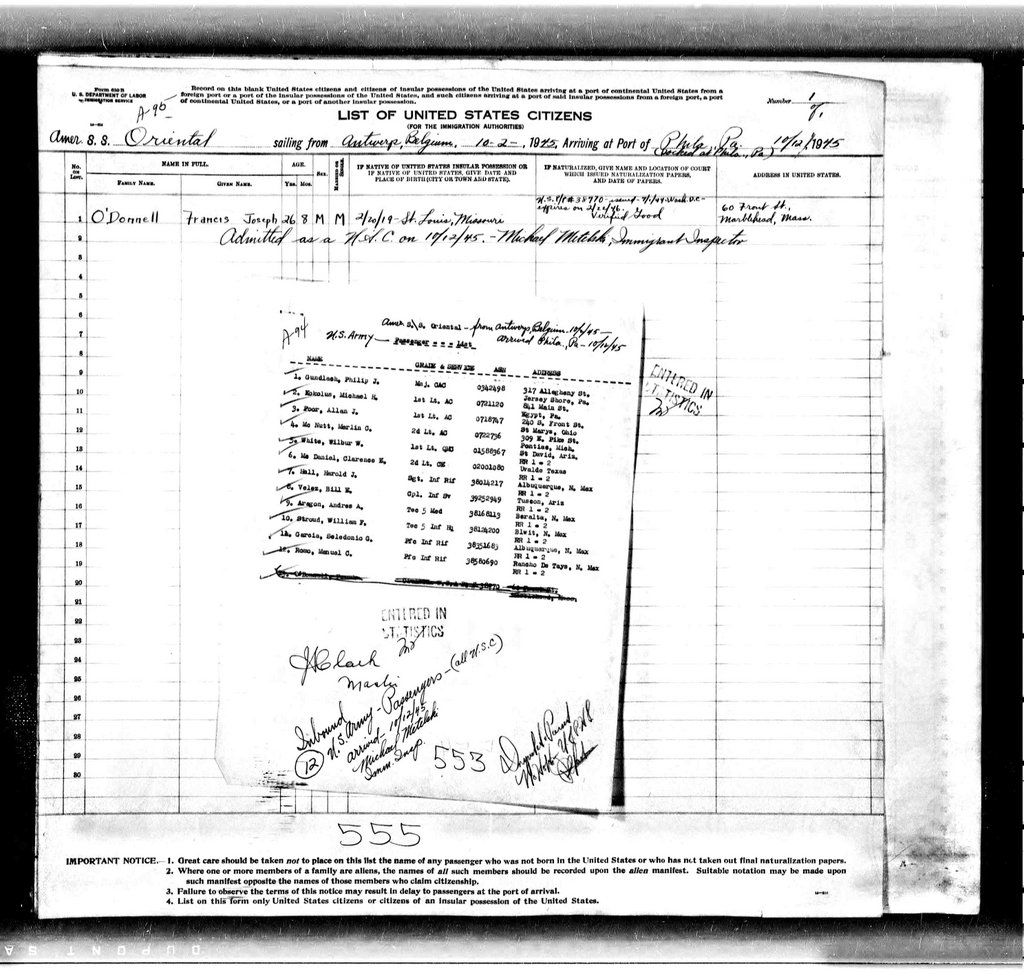 Form 630 B
U. S. DEPARTMENT OF LABOR
IMMIGRATION SERVICE
A-95
Record on this blank United States citizens and citizens of insular possessions of the United States arriving at a port of continental United States from a
foreign port or a port of the insular possessions of the United States, and such citizens arriving at a port of said insular possessions from a foreign port, a port
of continental United States, or a port of another insular possession.
Number 1
LIST OF UNITED STATES CITIZENS
(FOR THE IMMIGRATION AUTHORITIES)
Amer. S. S. Oriental sailing from Antwerp, Belgium, 10-2-, 1945, Arriving at Port of Phila., Pa. 10/12/1945
(Docked at Phila., Pa.)
No. on List.
NAME IN FULL.
FAMILY NAME. GIVEN NAME.
AGE.
YRS. MOS.
SEX.
MARRIED OR SINGLE.
IF NATIVE OF UNITED STATES INSULAR POSSESSION OR
IF NATIVE OF UNITED STATES, GIVE DATE AND
PLACE OF BIRTH (CITY OR TOWN AND STATE).
IF NATURALIZED, GIVE NAME AND LOCATION OF COURT
WHICH ISSUED NATURALIZATION PAPERS,
AND DATE OF PAPERS.
ADDRESS IN UNITED STATES.
1 O'Donnell Francis Joseph 26 8 M M 2/20/19-St. Louis, Missouri
#38770-issued
expires on
Verified Good
60 Front St.,
Marblehead, Mass.
2 Admitted as a U.S.C. on 10/12/45.-Michael Metelski, Immigrant Inspector
3
4
5
6
7
8
9
10
11
12
13
14
15
16
17
18
19
20
21
22
23
24
25
26
27
28
29
30
A-94
Amer. S/S. Oriental-from Antwerp, Belgium-10/2/45-
U.S. Army- Passenger - - - List arrived Phila., Pa-10/12/45
NAME GRADE & SERVICE ASN ADDRESS
1. Gundlach, Philip J. Maj. CAC 0342498 317 Allegheny St.
Jersey Shore, Pa.
2. Kokolus, Michael R. 1st Lt. AC 0721120 841 Main St.
Egypt, Pa.
3. Poor, Allan J. 1st Lt. AC 0718747 240 S. Front St.
St Marys, Ohio
4. Mc Nutt, Merlin G. 2d Lt. AC 0722736 309 E. Pike St.
Pontiac, Mich.
5. White, Wilbur W. 1st Lt. QMC 01588967 St David, Ariz.
RR 1 - 2
6. Mc Daniel, Clarence E. 2d Lt. CE 02001080 Uvalde Texas
RR 1 - 2
7. Hall, Harold J. Sgt. Inf Rif 38014217 Albuquerque, N. Mex
RR 1 - 2
8. Velez, Bill E. Cpl. Inf Sv 39252949 Tuscon, Ariz
RR 1 - 2
9. Aragon, Andres A. Tec 5 Med 38168113 Beralta, N. Mex
RR 1 - 2
10. Stroud, William F. Tec 5 Inf 38124200 N. Mex
RR 1 - 2
11. Garcia, Seledonio G. Pfc Inf Rif 38351683 Albuquerque, N. Mex
RR 1 - 2
12. Romo, Manual C. Pfc Inf Rif 38580690 Rancho De Tays, N. Mex
RR 1 - 2
ENTERED IN
STATISTICS
ENTERED IN
STATISTICS
JHClark
Master
Inbound
U.S. Army-Passengers-(all U.S.C)
arrived-10/12/45
Michael Metelski
Imm. Insp.
12
553
555
IMPORTANT NOTICE.—1. Great care should be taken not to place on this list the name of any passenger who was not born in the United States or who has not taken out final naturalization papers.
2. Where one or more members of a family are aliens, the names of all such members should be recorded upon the alien manifest. Suitable notation may be made upon
such manifest opposite the names of those members who claim citizenship.
3. Failure to observe the terms of this notice may result in delay to passengers at the port of arrival.
4. List on this form only United States citizens or citizens of an insular possession of the United States.
DUPONT SA